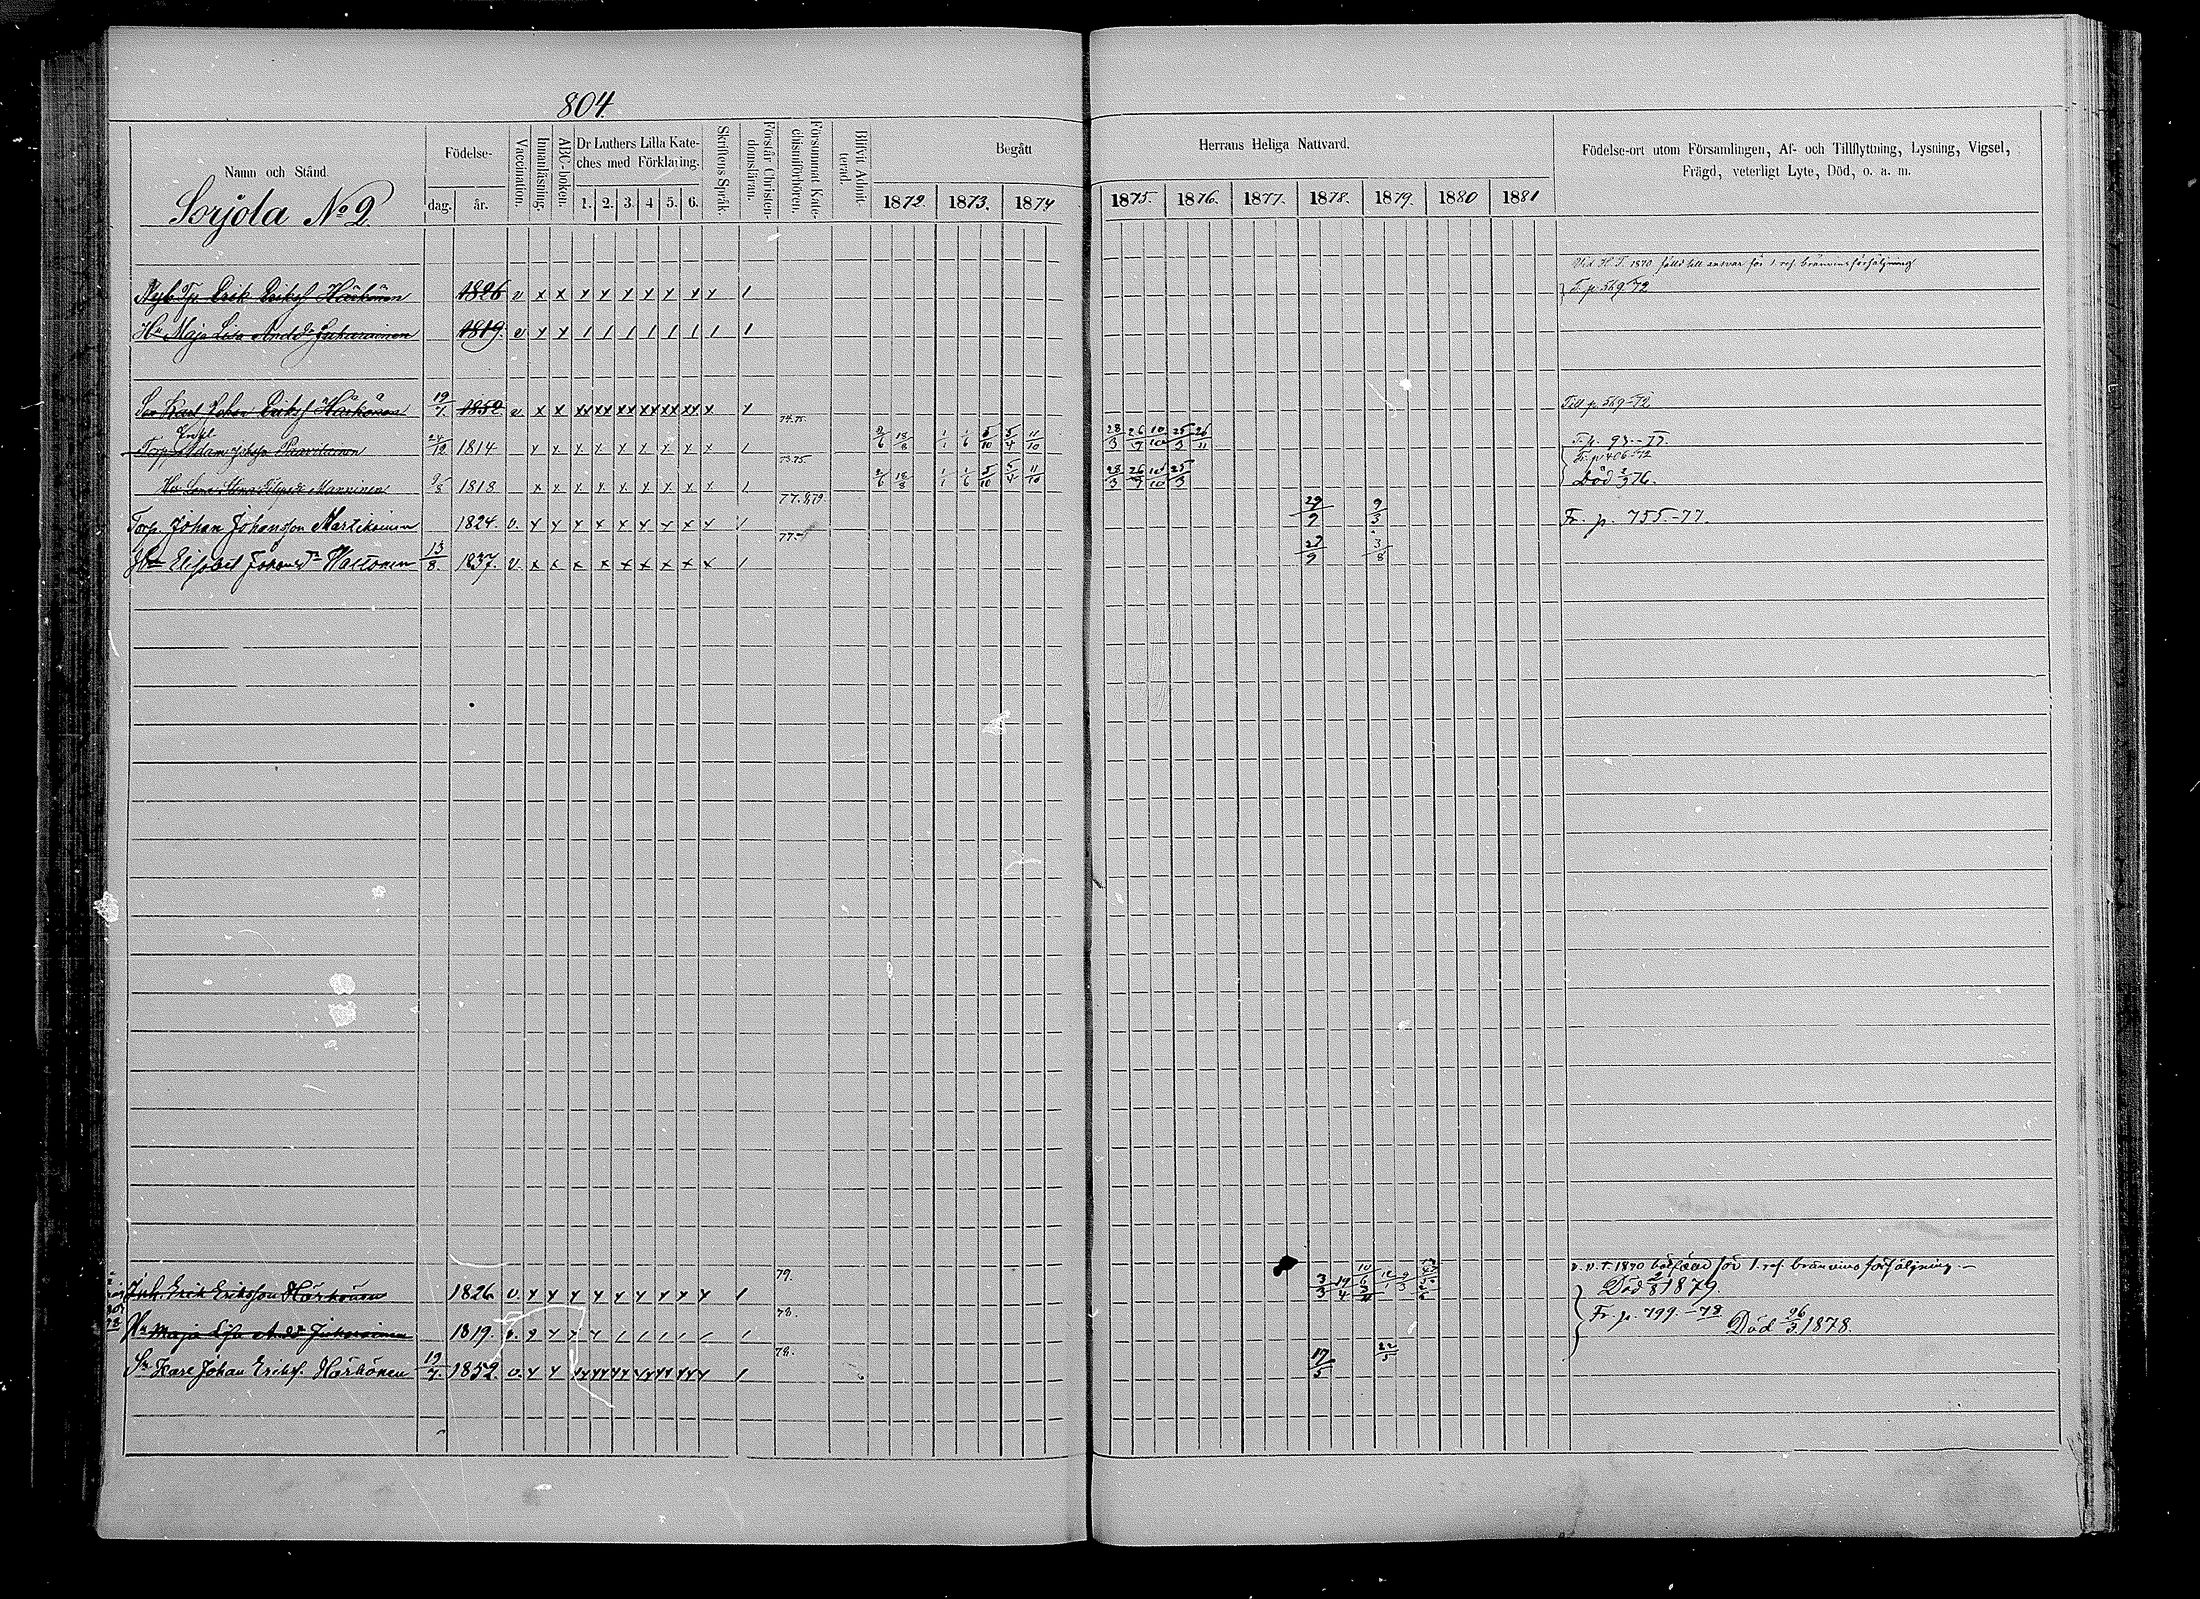 804.
Namn och Stånd.
Födelse-
dag. år.
Vaccination.
Innanläsning.
ABC-boken.
Dr Luthers Lilla Kate-
ches med Förklaring.
1. 2. 3. 4. 5. 6.
Skriftens Språk.
Förstår Christen-
domsläran.
Försummat Kate-
chismiförhören.
Blifvit Admit-
terad.
Begått
1872. 1873. 1874
Herrans Heliga Nattvard.
1875. 1876. 1877. 1878. 1879. 1880 1881
Födelse-ort utom Församlingen, Af- och Tillflyttning, Lysning, Vigsel,
Frägd, veterligt Lyte, Död, o. a. m.
Sorjola No 2.
Vid H. T. 1870 fälld till ansvar för 1. res. bränvinsförsäljning
Erik Eriks Härkönen 1826 v x x x x x x x x x 1 Fr. p. 569-72
Hu Maja Lisa Andd:r 1819. v x x 1 1 1 1 1 1 1 1
Son Karl Johan Eriks Härkönen 19/7 1852 v x x xx xx xx xx xx xx x 1 Till p. 569-72
74.75.
Torp. Adam 24/12 1814 x x x x x x x x x 1 2/6 18/8 1/1 1/6 5/10 5/4 11/10 28/3 26/7 10/10 25/3 26/11 T. p. 93.-77.
Fr. p. 406-72
73.75.
Hu Lena Stina Manninen 9/8 1818 x x x x x x x x x 1 2/6 18/8 1/1 1/6 5/10 5/4 11/10 28/3 26/7 10/10 25/3 Död 2/3 76.
77. 8,79.
Torp. Johan Johansson Martikainen 1824. v. x x x x x x x x x 1 29/9 9/3 Fr. p. 755.-77.
77.-
Hu Elisabet Johansd:r 13/8. 1837. v. x x x x x x x x x 1 29/9 3/8
v. v. T 1870 bötfälld för 1. res. bränvins försäljning.-
79.
Inh. Erik Eriksson Härkönen 1826 v. x x x x x x x x x 1 Död 2/8 1879.
78.
Hu Maja Lisa Andd:r 1819. v. x x x x 1 1 1 1 1 1 Fr. p. 799.-78 Död 26/3 1878.
78.
Sn Karl Johan Eriks. Härkönen 19/7. 1852. v. x x xx xx xx xx xx xx x 1 17/5 22/5